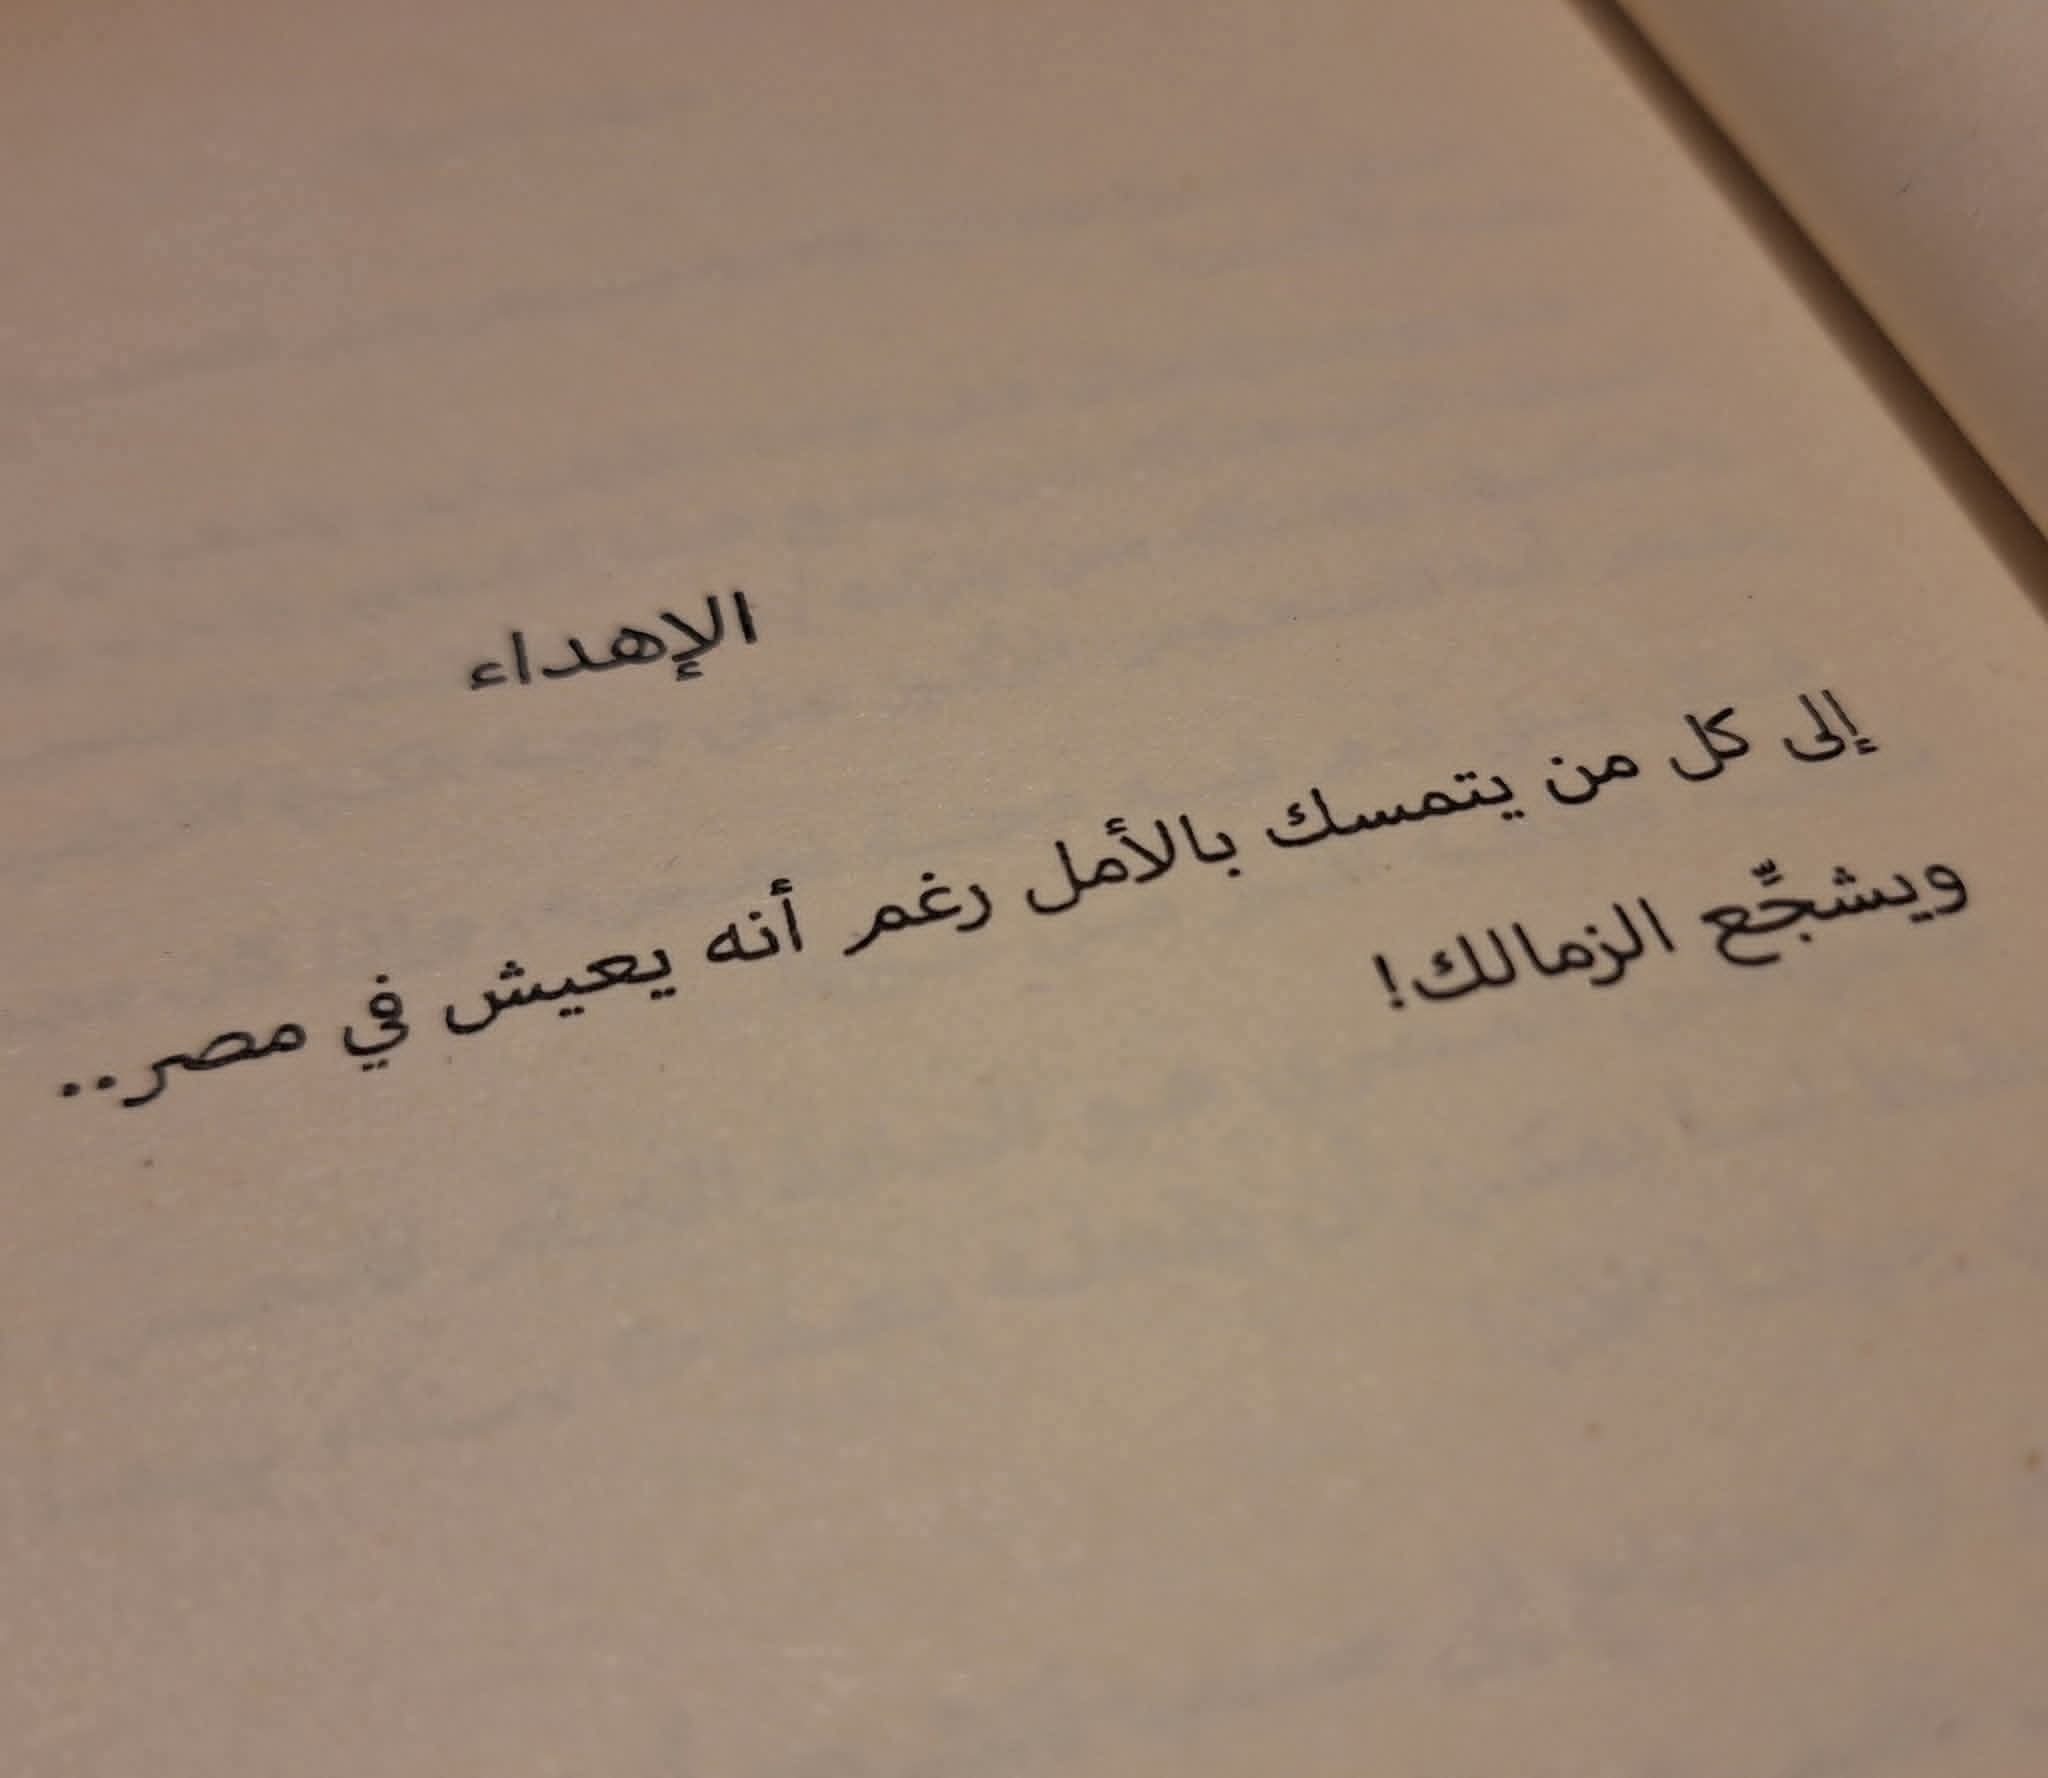 الإهداء
إلى كل من يتمسك بالأمل رغم أنه يعيش في مصر..
ويشجِّع الزمالك!